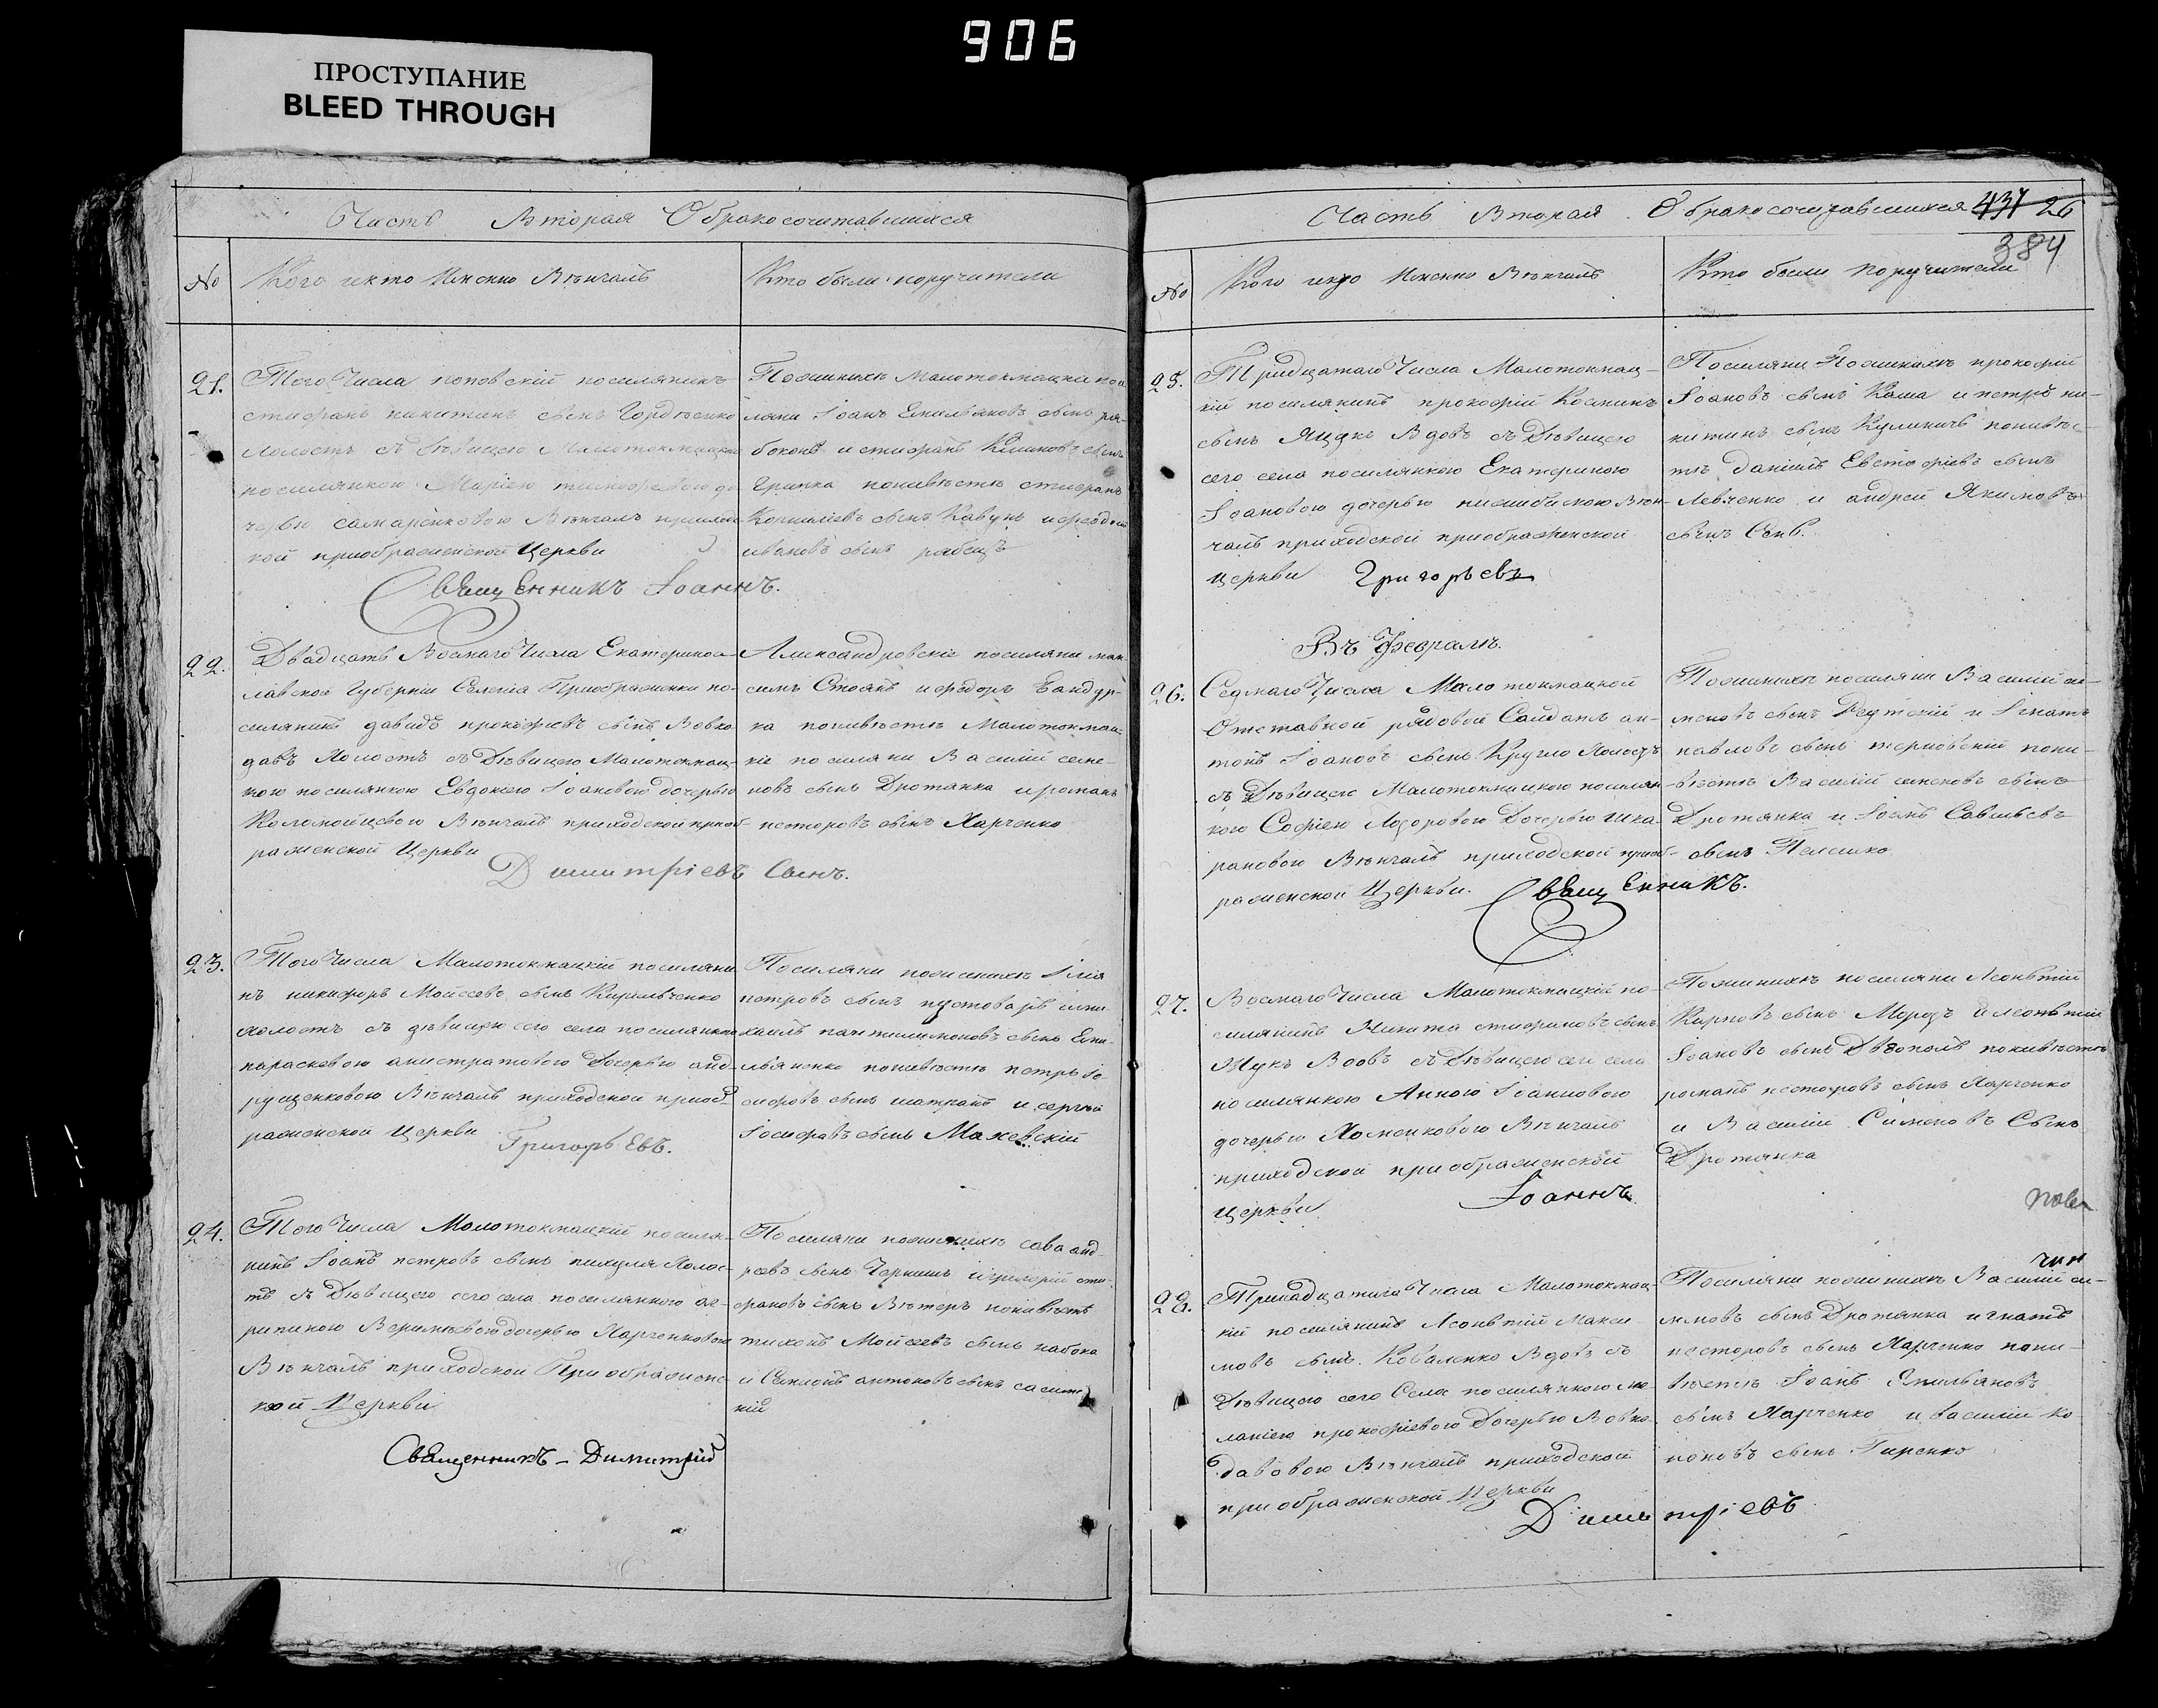 906
ПРОСТУПАНИЕ
BLEED THROUGH
Часть Вторая О бракосочитавшихся
No Кого и кто Именно Вѣнчалъ
Кто были поручители
21. Того Числа поповскій поселянинъ
стифанъ никитинъ сынъ Гордѣенко
холостъ съ дѣвицею Малотокмацкою
поселянкою Маріею тимофеевою до
черью самаренковою Вѣнчалъ приход
кой приображенской Церкви
СвЯщЕнникъ Іоаннъ.
По женихѣ Малотокмацкіе посе
ляни Іоанъ Емильяновъ сынъ ря-
боконь и стифанъ Климовъ сынъ
Гринка поневѣстѣ стифанъ
Корнилієвъ сынъ Кавунъ и феодоръ
ивановъ сынъ рябецъ
22. Двадцать Восмаго Числа Екатеринос
лавской Губерніи Селенія Приображенки по-
селянинъ давидъ прокофіевъ сынъ Вовко
давъ Холостъ съ Дѣвицею Малотокмац-
кою поселянкою Евдокіею Іоановою дочерью
Коломойцевою Вѣнчалъ приходской приоб-
раженской Церкви
Димитріевъ Сынъ.
Александровскіе поселяни мак-
симъ Стоянъ и федоръ Бандур-
ка поневѣстѣ Малотокмац-
кіе поселяни Василій семе-
новъ сынъ Дротянка и романъ
несторовъ сынъ Харченко
23. Того Числа Малотокмацкій поселяни
нъ никифоръ Мойсеевъ сынъ Кирильченко
холостъ съ дѣвицею сего села поселянкою
парасковою анистратовою Дочерью анд-
рущенковою Вѣнчалъ приходской приоб-
раженской Церкви
ГригорьЕвъ.
Поселяни поженихѣ Ілія
петровъ сынъ пустоваръ и ми-
хаилъ пантилимоновъ сынъ Еми-
льяненко поневѣстѣ петръ Іо-
сифовъ сынъ шатканъ и сергѣй
Іосифовъ сынъ Махевскій
24. Того Числа Малотокмацкій поселя-
нинъ Іоанъ петровъ сынъ пихуля Холос-
тъ съ Дѣвицею сего села поселянкою аг-
рипиною Веремѣевою дочерью Харченковою
Вѣнчалъ приходской Приображенс-
кой Церкви
СвЯщенникъ - Димитрій
Поселяни поженихѣ сава анд-
реевъ сынъ Чернишъ и григорій сти-
фановъ сынъ Вѣтеръ поневѣстѣ
тихонъ Мойсеевъ сынъ набока
и Семионъ антоновъ сынъ
кій
Часть Вторая О бракосочитавшихся 437 26
384
No Кого и кто Именно Вѣнчалъ
Кто были поручители
25. Тридцатаго Числа Малотокмац-
кій поселянинъ прокофій Козминъ
сынъ Яцукъ Вдовъ съ Дѣвицею
сего села поселянкою Екатериною
Іоановою дочерью Вѣн-
чалъ приходской приображенской
церкви Григорьевъ
Поселяни Поженихѣ прокофій
Іоановъ сынъ Каша и петръ ни-
китинъ сынъ Куличъ поневѣс-
тѣ даніилъ Евстафіевъ сынъ
Левченко и андрей Якимовъ
сынъ
Въ Февралѣ.
26. Седмаго Числа Малотокмацкой
Отставной рядовой Салдатъ ан-
тонъ Іоановъ сынъ Кругло Холостъ
съ Дѣвицею Малотокмацкою поселян-
кою Софіею Ѳодоровою Дочерью шка-
рановою Вѣнчалъ приходской приоб-
раженской Церкви. СвЯщЕнникъ.
Поженихѣ поселяни Василій се-
меновъ сынъ Реутскій и Ігнатъ
павловъ сынъ терновскій поне-
вѣстѣ Василій семеновъ сынъ
Дротянка и Іоанъ Савельевъ
сынъ
27. Восмаго Числа Малотокмацкій по-
селянинъ Никита стифановъ сынъ
Жукъ Вдовъ съ Дѣвицею сего села
поселянкою Анною Іоанновою
дочерью Хоменковою Вѣнчалъ
приходской приображенской
церкви Іоаннъ
Поженихѣ поселяни Леонтій
Карповъ сынъ Морозъ и леонтій
Іоановъ сынъ поневѣстѣ
романъ несторовъ сынъ Харченко
и Василій Сименовъ Сынъ
Дротянка
28. Тринадцатаго Числа Малотокмац-
кій поселянинъ Леонтій Макси-
мовъ сынъ Коваленко Вдовъ съ
Дѣвицею сего Села поселянкою ме-
ланіею прокофіевою Дочерью Вовко-
давовою Вѣнчалъ приходской
приображенской Церкви
Димитріевъ
Поселяни поженихѣ Василій се-
меновъ сынъ Дротянка игнатъ
несторовъ сынъ Харченко поне-
вѣстѣ Іоанъ Емильяновъ
сынъ Харченко и василій ко-
ноновъ сынъ Гиренко